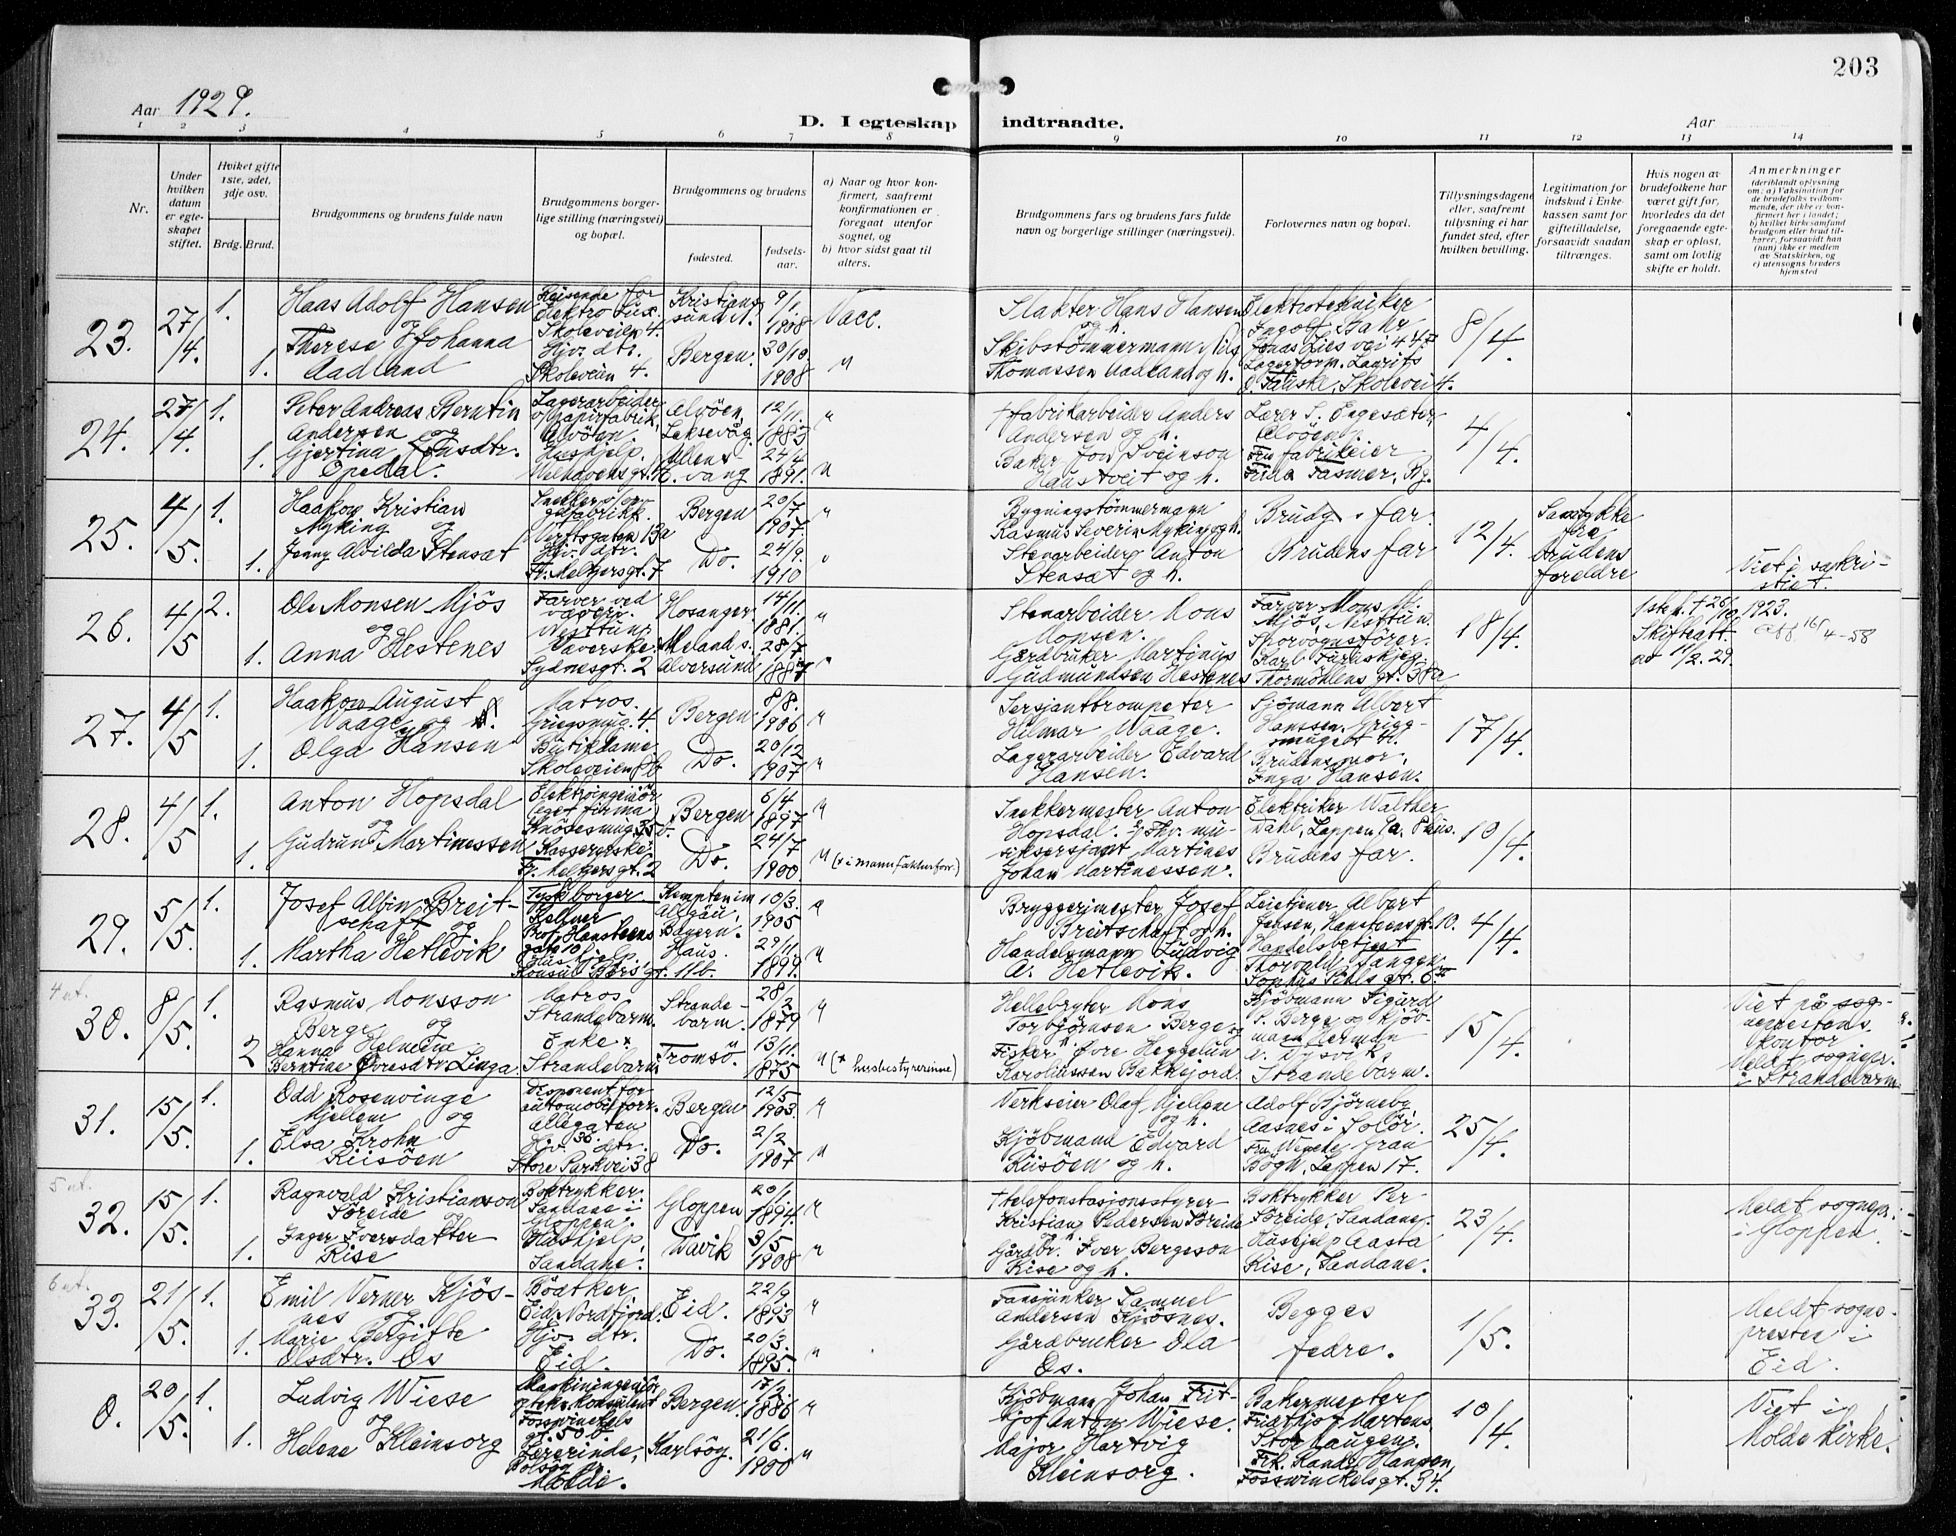 203
Aar 1929.
D. I egteskap indtraadte.
Aar
1 2 3 4 5 6 7 8 9 10 11 12 13 14
Nr.
Under hvilken datum er egteskapet stiftet.
Hvilket gifte 1ste, 2det, 3dje osv.
Brdg. Brud.
Brudgommens og brudens fulde navn
Brudgommens borgerlige stilling (næringsvei) og bopæl.
Brudgommens og brudens
fødested.
fødselsaar.
a) Naar og hvor konfirmert, saafremt konfirmationen er foregaat utenfor sognet, og
b) hvor sidst gaat til alters.
Brudgommens fars og brudens fars fulde navn og borgerlige stillinger (næringsvei).
Forlovernes navn og bopæl.
Tillysningsdagene eller, saafremt tillysning ei har fundet sted, efter hvilken bevilling.
Legitimation for indskud i Enkekassen samt for giftetilladelse, forsaavidt saadan tiltrænges.
Hvis nogen av brudefolkene har været gift før, hvorledes da det foregaaende egteskap er opløst, samt om lovlig skifte er holdt.
Anmerkninger
23. 27/4. 1.
Haas Adolf Hansen
og
Therese Johanna
Aadland
1.
Reisende for
Elektro Lux.
Skoleveien 4.
Hjv. dtr.
Skoleveien 4.
Kristiansund N.
Bergen.
9/1 1908
30/10 1908
Vacc.
"
Slakter Hans Hansen
og h.
Skibstømmermann Nils
Thomassen Aadland og h.
Elektrotekniker
Ingolf Bahr
Jonas Lies vei 47
Lagerform. Laurits
O. Fauske, Skolevei 4.
8/4.
24. 27/4 1.
Peter Andreas Berntin
Andersen og
Gjertina Jonsdtr.
Opedal.
1.
Lagerarbeider
v/ Papirfabrik,
Alvöen.
Hushjelp.
Alvöen,
Laksevåg
Ullensvang
12/11. 1883
24/4 1891.
"
"
† Fabrikarbeider Anders
Andersen og h.
Baker Jon Sveinson
Haustveit og h.
Lærer S. Engesæter,
Alvöen.
Fru fabrikeier
Frida Fasmer, Bg.
4/4.
25. 4/5. 1.
Haakon Kristian
Myking og
Jenny Alvilda Stensæt
1.
Verftsgaten 13a
Hjv. dtr.
Fr. Meltzersgt. 7
Bergen
Do.
20/7 1907.
24/9. 1910
"
"
Bygningstømmermann
Rasmus Severin Myking og h.
Stenarbeider Anton
Stensæt og h.
Brudg. far.
Brudens far
12/4.
Samtykke
fra
brudens
foreldre
Viet i sakristiet.
26. 4/5 2.
Ole Monsen Mjös
og
Anna Hestenes
1.
Farver ved
væveri.
Nesttun.
Væverske.
Sydnesgt. 2
Hosanger
Meland s.
Alversund
14/11. 1881.
28/7 1887
"
"
Stenarbeider Mons
Monsen.
Gardbruker Martinus
Gudmundsen Hestenes
Farver Mons M.
Mjös, Nesttun.
Thormöhlens gt. 38a
18/4.
1ste h. † 26/10 1923.
Skifteatt.
av 11/2. 29.
Att. 16/4-58
27. 4/5 1.
Haakon August
Waage og
Olga Hansen
1.
Matros.
Griegsmug. 4.
Butikdame
Skoleveien
Bergen
Do.
8/8. 1906
20/12 1907
"
"
Sersjanttrompeter
Hilmar Waage.
Lagerarbeider Edvard
Hansen.
Sjömann Albert
Hanssen, Griegsmuget 4.
Brudens mor,
Inga Hansen.
17/4.
28. 4/5 1.
Anton Hopsdal
og
Gudrun Martinessen
1.
Elektroingeniör
(eget firma)
Knösesmug. 35 b.
Kassererske
Fr. Meltzersgt. 2
Bergen
Do.
6/4 1897
24/7 1900.
"
" (+ i manufakturforr.)
Snekkermester Anton
Hopsdal. Fhv. musiksersjant Martines
Johan Martinessen.
Elektriker Walther
Dahl, Lappen 9a.
Brudens far.
10/4.
29. 5/5. 1.
Josef Albin Breitschaft og
Martha Hetlevik
1.
Tysk borger
Kellner
Prof. Hansteens
gate 10
Hushjelp
Konsul Börs gt. 11b.
Kempten im
Allgäu,
Bayern.
Haus.
10/3. 1905
29/11. 1897.
"
"
Bryggerimester Josef
Breitschaft og h.
Handelsmann Ludvig
A. Hetlevik.
Leietjener Albert
Jensen, Hansteensgt. 10.
Handelsbetjent
Thorvald Tangen
Sophus Pihls gt.
4/4.
4 ut.
30. 8/5. 1.
Rasmus Monsson
Berge og
Hanna Helmine
Berntine Övresdtr. Linga
2
Matros
Strandebarm.
Enke +
Strandebarm
Strandebarm.
Tromsö.
28/2 1879
13/11. 1875
"
" (+ husbestyrerinne)
Hellebryter Mons
Torbjörnsen Berge og
Fisker Övre Heggelun
Karoliussen Bakkejord
Kjöbmann Sigurd
S. Berge og kjöbmann Herman
A. Dysvik,
Strandebarm.
15/4.
Viet på sogneprestens
kontor
Meldt sognepr.
i Strandebarm.
31. 15/5. 1.
Odd Rosenvinge
Kjellem og
Elsa Krohn
Riisöen
1.
Disponent for
automobilforr.
Allegaten
36.
Hjv. dtr.
Store Parkvei 38
Bergen
Do.
12/5 1903.
2/2 1907
"
"
Verkseier Olaf Kjellem
og h.
Kjöbmann Edvard
Riisöen og h.
Adolf Bjørneby
Aasnes i Solör.
Fru Wenche Gran
Bögh, Lappen 17.
25/4.
5 ut.
32. 15/5. 1.
Ragnvald Kristianson
Söreide og
Inger Iversdatter
Rise
1.
Boktrykker.
Sandane i
Gloppen.
Hushjelp,
Sandane.
Gloppen
Davik
20/1. 1894.
3/5 1908
"
"
† telefonstasjonsstyrer
Kristian Pedersen Söreide
og h.
Gårdbr. Iver Bergeson
Rise og h.
Boktrykker Per
Söreide, Sandane.
Hushjelp Aasta
Rise, Sandane.
23/4.
Meldt sognepr.
i Gloppen.
6 ut.
33. 21/5. 1.
Emil Verner Kjösnes og
Marie Bergitte
Olsdtr. Os
1.
Böatker
Eid, Nordfjord.
Hjv. dtr.
Eid.
Eid.
Do.
22/9 1893
20/3. 1895.
"
"
Fanejunker Samuel
Andersen Kjösnes.
Gårdbruker Ola
Os.
Begges
fedre.
1/5.
Meldt sognepresten i
Eid.
0. 20/5. 1.
Ludvig Wiese
og
Helene Kleinsorg
1.
Maskiningeniör
og tekn. konsulent
Fosswinckels
gt. 50 b.
Lærerinde,
Bolsöy
Molde.
Bergen.
Karlsöy.
17/2. 1886
21/6. 1900
"
"
Kjöbmann Johan Fritjof Anton Wiese.
Major Hartvig
Kleinsorg.
Bakermester
Fridthjof Martens,
Storhaugen.
Frk. Randi Hansen,
Fosswinckelsgt. 34.
10/4.
Viet i
Molde kirke.